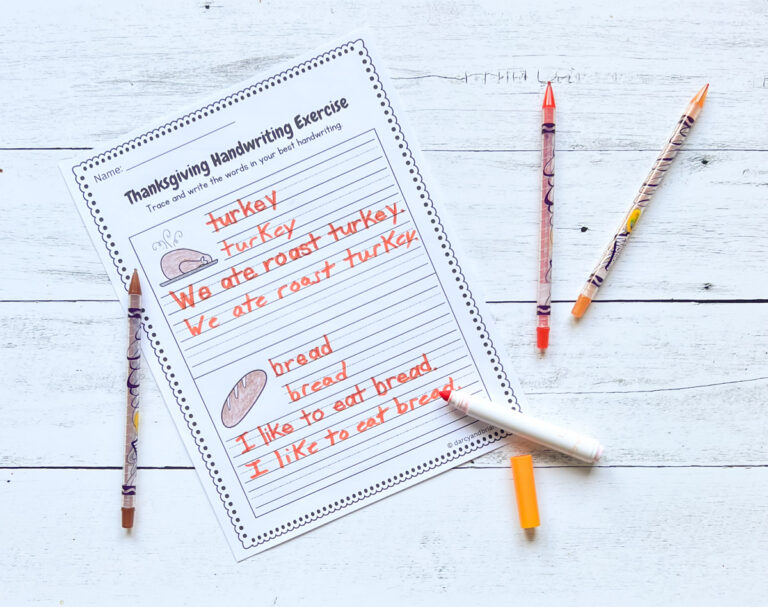 Name:
Thanksgiving Handwriting Exercise
Trace and write the words in your best handwriting.
turkey
turkey
We ate roast turkey.
We ate roast turkey.
bread
bread
I like to eat bread.
I like to eat bread.